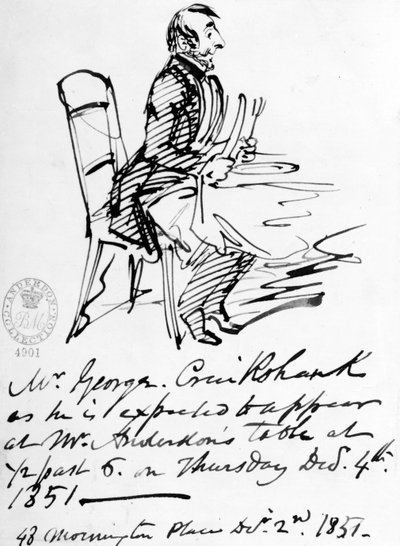 ANDERDON COLLECTION
BM
4901
Mr. George. Cruikshank
as he is expected to appear
at Mr. Anderdon's Table at
1/2 past 6. on Thursday Decr. 4th.
1851
48 Mornington Place Decr. 2nd. 1851.